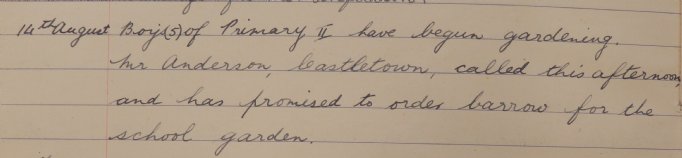 14th August Boys(5) of Primary II have begun gardening.
Mr Anderson, Castletown, called this afternoon,
and has promised to order barrow for the
school garden.